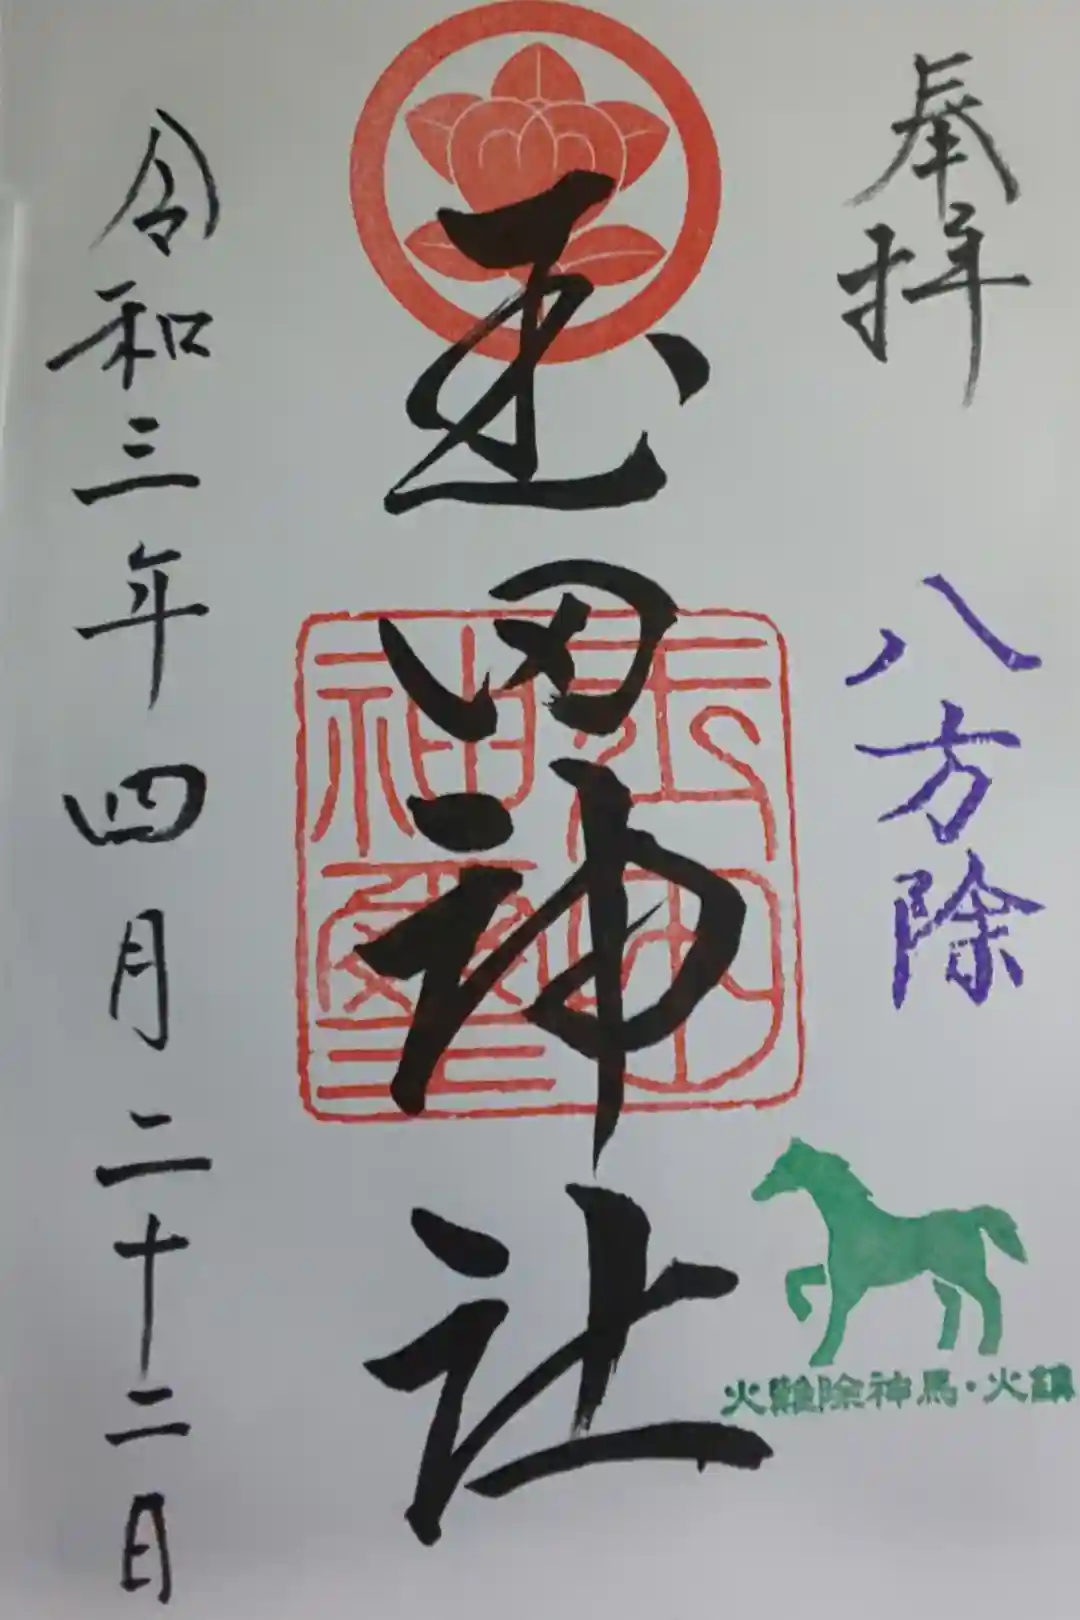 奉拝
八方除
火難除神馬・火講
玉田神社
玉田
神璽
令和三年四月二十二日